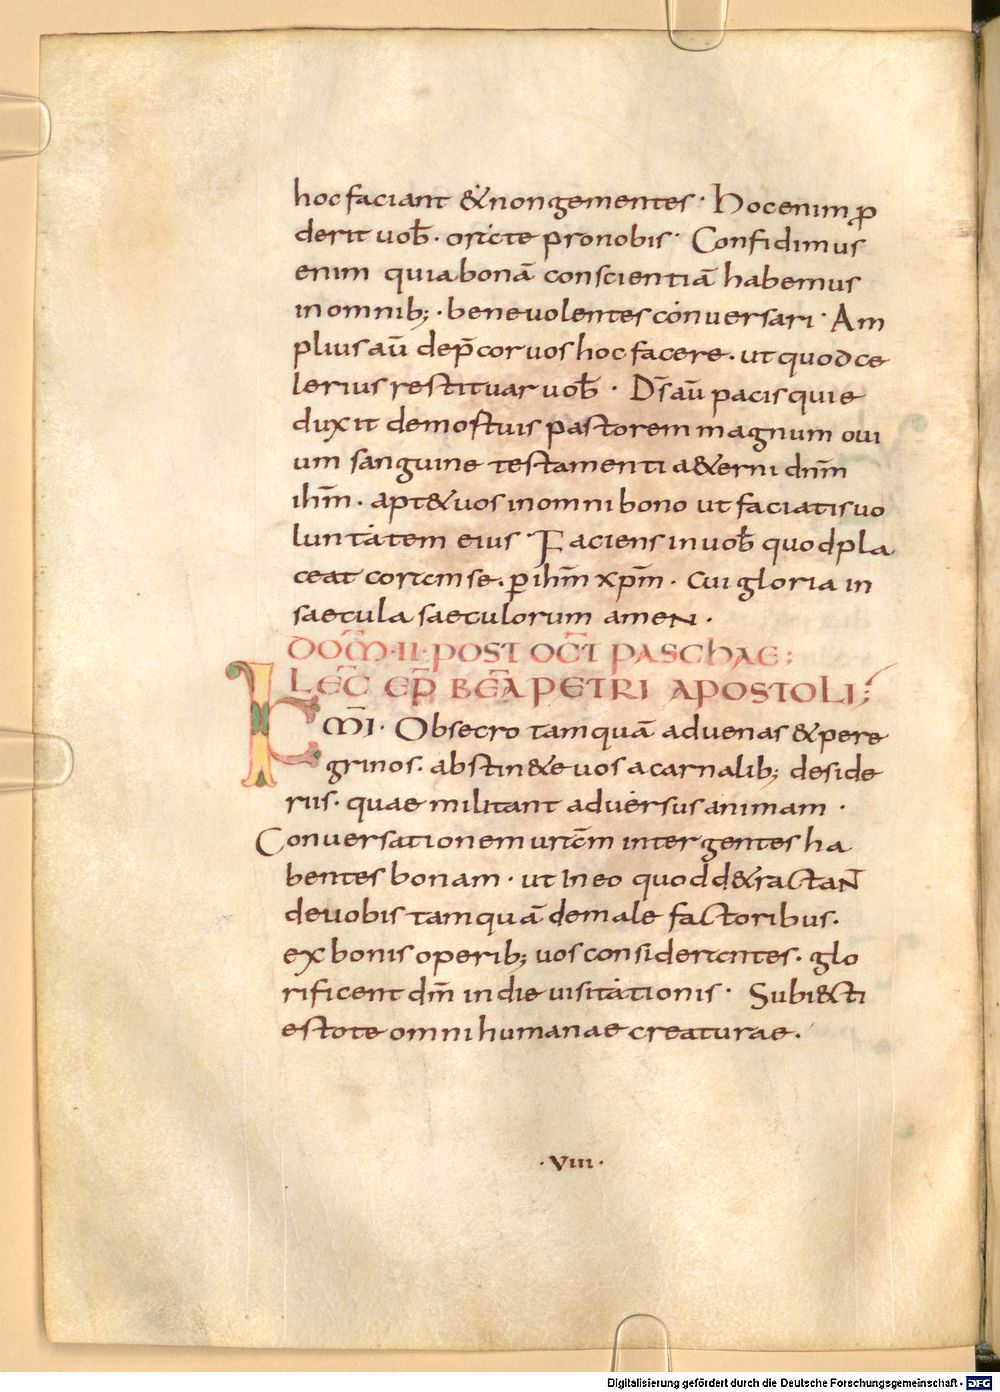 hoc faciant & non gementes · Hoc enim ꝓ
derit uob̄ · orate pro nobis · Confidimus
enim quia bonā conscientiā habemus
in omnib; · bene uolentes conuersari · Am
plius aū dep̄cor uos hoc facere · ut quo ce
lerius restituar uob̄ · D̄s aū pacis qui e
duxit de mortuis pastorem magnum oui
um sanguine testamenti a&erni dn̄m
ih̄m · apt& uos in omni bono ut faciatis uo
luntatem eius · Faciens in uob̄ quod pla
ceat coram se · ꝑ ih̄m xp̄m · Cui gloria in
saecula saeculorum amen ·
DOM̄ · II · POST OCT̄ PASCHAE;
LEC̄ EP̄ BEĀ PETRI APOSTOLI;
K M̄I · Obsecro tamquā aduenas & pere
grinos · abstin&e uos a carnalib; deside
riis · quae militant aduersus animam ·
Conuersationem uram̄ inter gentes ha
bentes bonam · ut in eo quod d&ractaN̄
de uobis tamquā de male factoribus ·
ex bonis operib; uos considerantes · glo
rificent dm̄ in die uisitationis · Subi&ti
estote omni humanae creaturae ·
· VIII ·
Digitalisierung gefördert durch die Deutsche Forschungsgemeinschaft - DFG